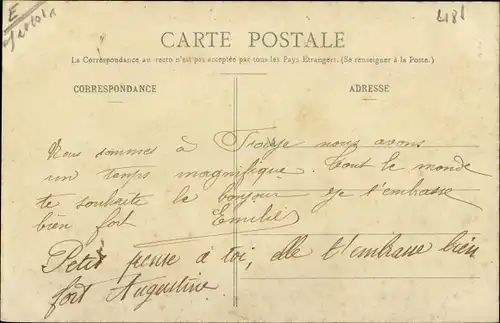 E
4181
CARTE POSTALE
La Correspondance au recto n'est pas acceptée par tous les Pays Étrangers. (Se renseigner à la Poste.)
CORRESPONDANCE
ADRESSE
Nous sommes à nous avons
un temps magnifique. Tout le monde
te souhaite le bonjour je t'embrasse
bien fort Emilie
Petit pense à toi, elle t'embrasse bien
fort Augustine.